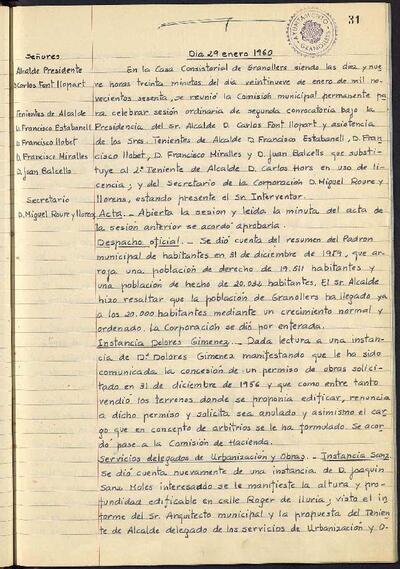 31
AYUNTAMIENTO
GRANOLLERS
Señores
Dia 29 enero 1960
Alcalde Presidente
D. Carlos Font Llopart
Tenientes de Alcalde
D. Francisco Estabanell
D. Francisco Llobet
D. Francisco Miralles
D. Juan Balcells
Secretario
D. Miguel Roure y Llorens
En la Casa Consistorial de Granollers siendo las diez y nue
ve horas treinta minutos del dia veintinueve de enero de mil no
vecientos sesenta, se reunió la Comisión municipal permanente pa
ra celebrar sesión ordinaria de segunda convocatoria bajo la
Presidencia del Sr. Alcalde D. Carlos Font Llopart y asistencia
de los Sres. Tenientes de Alcalde D. Francisco Estabanell, D. Fran
cisco Llobet, D. Francisco Miralles y D. Juan Balcells que substi-
tuye al 2º Teniente de Alcalde D. Carlos Hors en uso de li-
cencia; y del Secretario de la Corporación D. Miguel Roure y
Llorens, estando presente el Sr. Interventor.
Acta._ Abierta la sesion y leida la minuta del acta de
la sesión anterior se acordó aprobarla.
Despacho oficial._ Se dió cuenta del resumen del Padron
municipal de habitantes en 31 de diciembre de 1959, que ar-
roja una población de derecho de 19.511 habitantes y
una población de hecho de 20.034 habitantes. El sr. Alcalde
hizo resaltar que la población de Granollers ha llegado ya
a los 20.000 habitantes mediante un crecimiento normal y
ordenado. La Corporación se dió por enterada.
Instancia Dolores Gimenez._ Dada lectura a una instan-
cia de Dª Dolores Gimenez manifestando que le ha sido
comunicada la concesion de un permiso de obras solici-
tado en 31 de diciembre de 1956 y que como entre tanto
vendió los terrenos donde se proponia edificar, renuncia
a dicho permiso y solicita sea anulado y asimismo el car-
go que en concepto de arbitrios se le ha formulado. Se acor-
dó pase a la Comisión de Hacienda.
Servicios delegados de Urbanización y Obras._ Instancia Sanz.
Se dió cuenta nuevamente de una instancia de D. Joaquin
Sanz Moles interesando se le manifieste la altura y pro-
fundidad edificable en calle Roger de Lluria; visto el in
forme del Sr. Arquitecto municipal y la propuesta del Tenien
te de Alcalde delegado de los servicios de Urbanización y O-